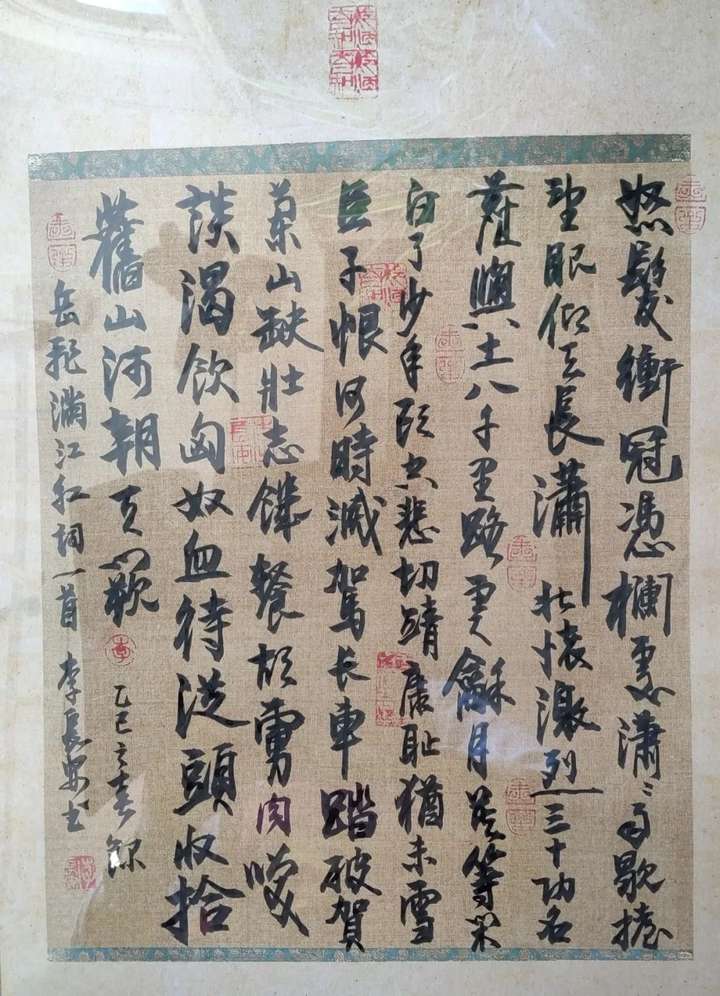 怒髮衝冠憑欄處瀟瀟雨歇擡
望眼仰天長瀟壯懷激烈三十功名
塵與土八千里路雲龢月莫等閑
白了少年頭空悲切靖康恥猶未雪
臣子恨何時滅駕長車踏破賀
蘭山缺壯志饑餐胡虜肉笑
談渴飲匈奴血待從頭收拾
舊山河朝天闕 李 乙巳之春錄
岳飛滿江紅詞一首 李书